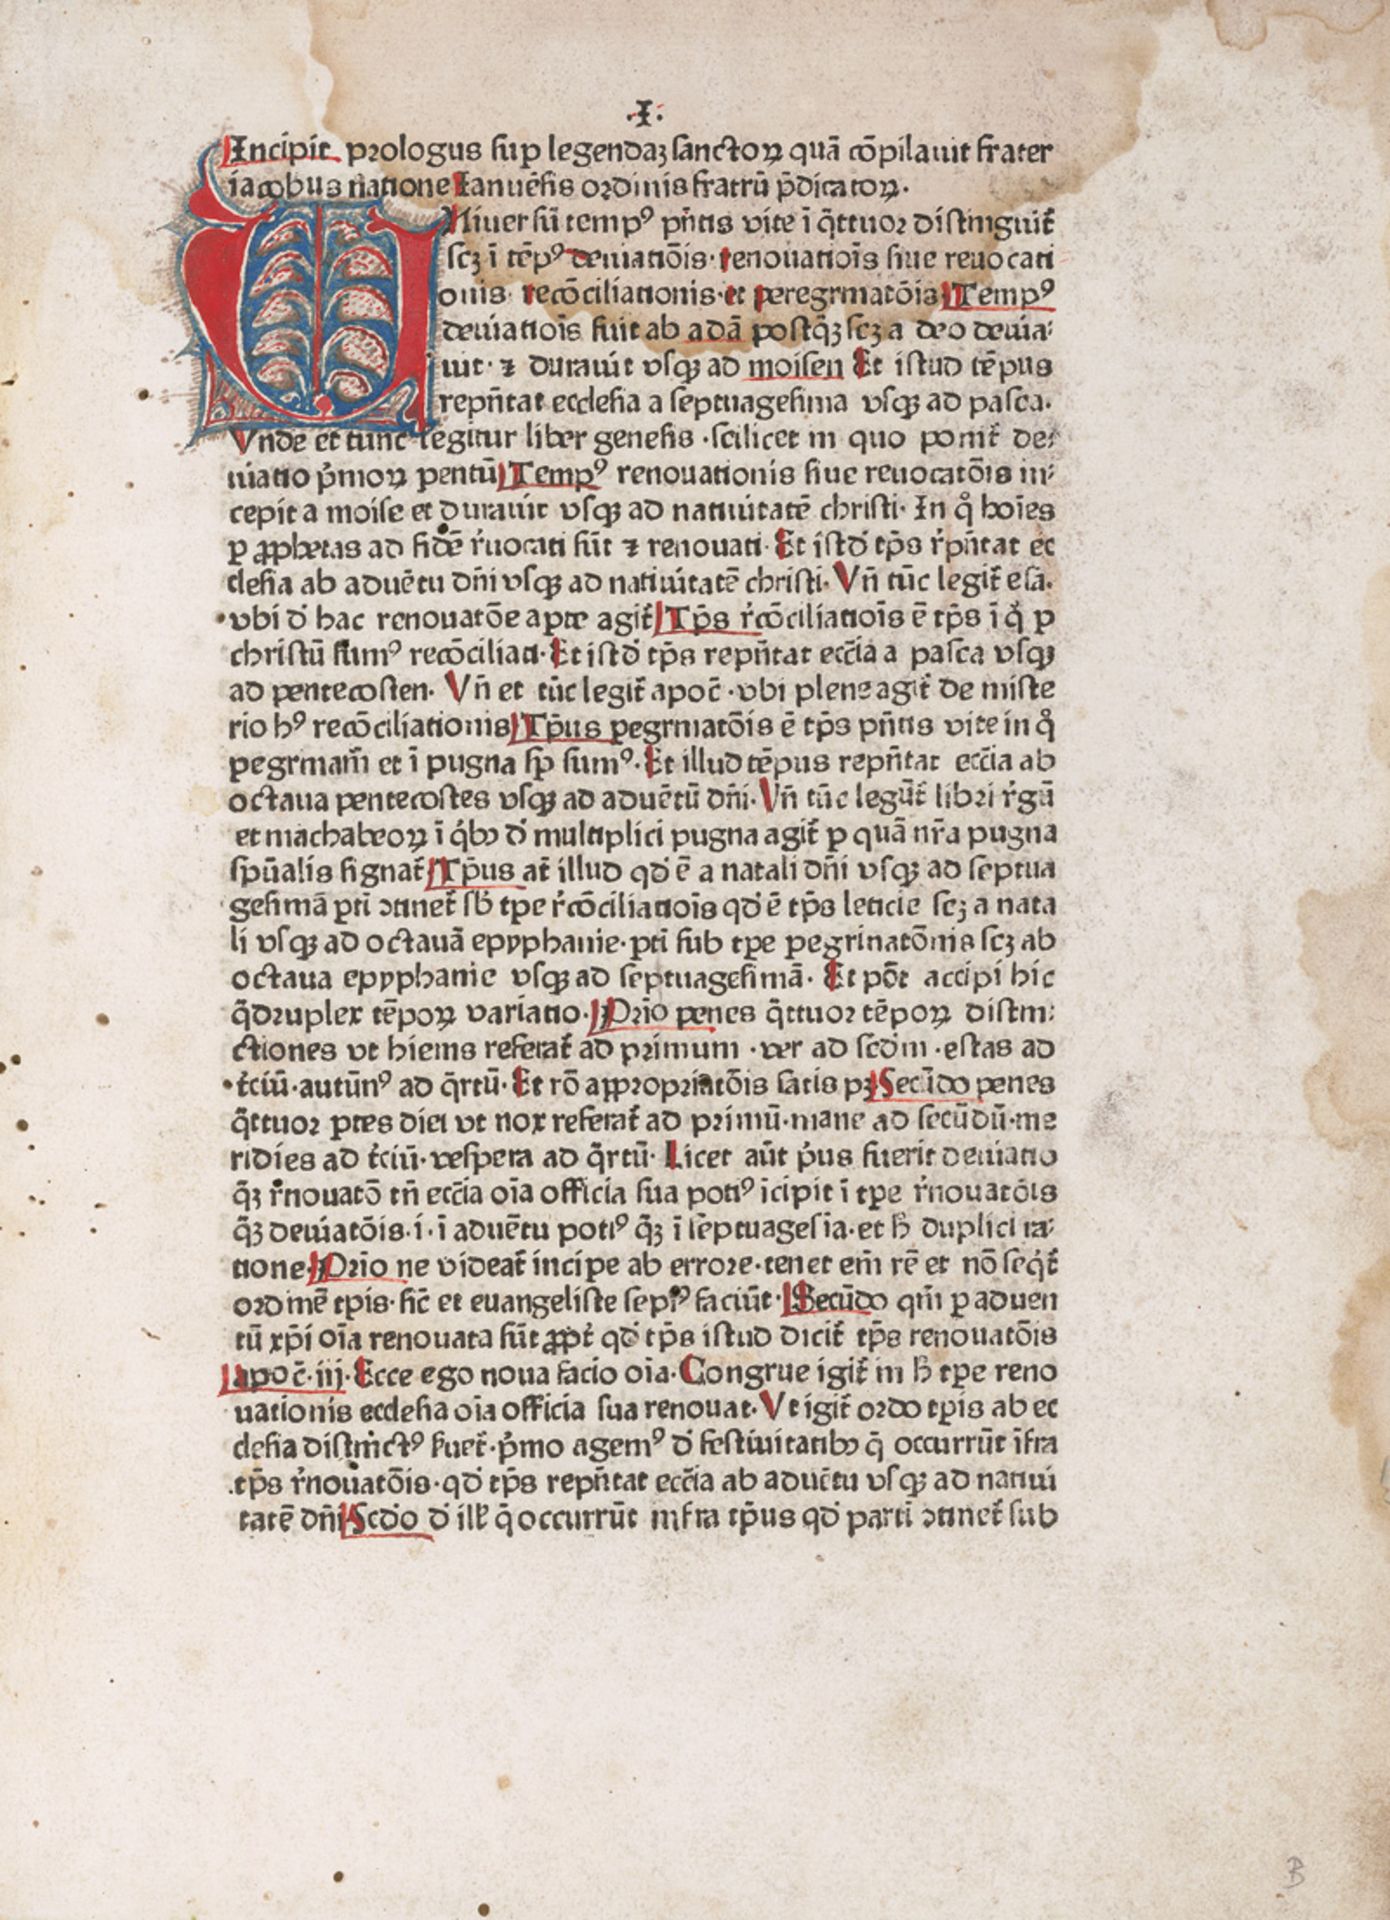 .I.
Incipit prologus sup legendaꝫ sanctoꝝ quā cōpilauit frater
iacobus natione Ianuēsis ordinis fratrū p̄dicatoꝝ.
UNiuersū tempꝰ pn̄tis vite ī q̄ttuor distinguit᷑
scꝫ ī tēpꝰ deuiatiōis· renouatiōīs siue reuocati
onis recōciliationis· et peregrinatōis Tempꝰ
deuiatiōīs fuit ab adā postq̄ꝫ scꝫ a deo deuia:
uit· ⁊ durauit vsqꝫ ad moisen Et istud tēpus
repn̄tat ecclesia a septuagesima vsqꝫ ad pasca.
Vnde et tunc legitur liber genesis ·scilicet in quo ponit᷑ de:
uiatio p̓moꝝ pentū Tempꝰ renouationis siue reuocatōis in:
cepit a moise et durauit vsqꝫ ad natiuitatē christi· In qͦ hoīes
ꝑ ꝓphetas ad fidē r̓uocati sūt ⁊ renouati· Et istd̓ tp̄s r̓pn̄tat ec
clesia ab aduētu dn̄i vsqꝫ ad natiuitatē christi. Vn̄ tūc legit᷑ esā.
vbi d̓ hac renouatōe apte agit᷑ Tp̄s r̓cōciliatiōīs ē tp̄s ī qͦ ꝑ
christū sumꝰ recōciliati· Et istd̓ tp̄s repn̄tat ecc̄ia a pasca vsqꝫ
ad pentecosten. Vn̄ et tūc legit᷑ apoc̄ ·vbi plene agit᷑ de miste
rio hꝰ recōciliationis Tp̄us pegrinatōis ē tp̄s pn̄tis vite in qͦ
pegrinam᷑ et ī pugna sp̄ sumꝰ· Et illud tēpus repn̄tat ecc̄ia ab
octaua pentecostes vsqꝫ ad aduētū dn̄i· Vn̄ tūc legūt᷑ libri r̓gū
et machabeoꝝ ī q̓bꝫ d̓ multiplici pugna agit᷑ ꝑ quā nr̄a pugna
sp̄ūalis signat᷑ Tp̄us at᷑ illud qd̓ ē a natali dn̄i vsqꝫ ad septua
gesimā ꝑti ↄtinet᷑ sb̓ tꝑe r̓cōciliatiōīs qd̓ ē tp̄s leticie scꝫ a nata
li vsqꝫ ad octauā epyphanie· ꝑti sub tꝑe pegrinatōnis scꝫ ab
octaua epyphanie vsqꝫ ad septuagesimā· Et pōt accipi hic
q̄druplex tēpoꝝ variatio· Prīo penes q̄ttuor tēpoꝝ distin:
ctiones vt hiems referat᷑ ad primum ·ver ad scdm ·estas ad
t̓ciū· autūnꝰ ad q̄rtū· Et rō appropriatōis satis pꝫ Secūdo penes
q̄ttuor ꝑtes diei vt nox referat᷑ ad primū· mane ad secūdū· me
ridies ad t̓ciū· vespera ad q̄rtū· Licet aūt p̓us fuerit deuiatio
q̄ꝫ r̓nouatō tn̄ ecc̄ia oīa officia sua potiꝰ īcipit ī tꝑe r̓nouatōis
q̄ꝫ deuiatōis· i· ī aduētu potiꝰ q̄ꝫ ī septuagesīa· et h̓ duplici ra:
tione· Prīo ne videat᷑ incipe ab errore· tenet em̄ rē et nō seq̓t᷑
ordinē tꝑis· sic̄ et euangeliste sepiꝰ faciūt· Secūdo qm̄ ꝑ aduen
tū xp̄i oīa renouata sūt ꝓpt̓ qd̓ tp̄s istud dicit᷑ tp̄s renouatōis
apoc̄· iij· Ecce ego noua facio oīa· Congrue igit᷑ in h̓ tꝑe reno
uationis ecclesia oīa officia sua renouat· Vt igit᷑ ordo tꝑis ab ec
clesia distinctꝰ suet᷑· p̓mo agemꝰ d̓ festiuitatibꝫ q̄ occurrūt īfra
tp̄s r̓nouatōis· qd̓ tp̄s repn̄tat ecc̄ia ab aduētu vsqꝫ ad natiui
tatē dn̄i Scd̓o d̓ ill̓ q̄ occurrūt infra tp̄us qd̓ parti ↄtinet᷑ sub
B